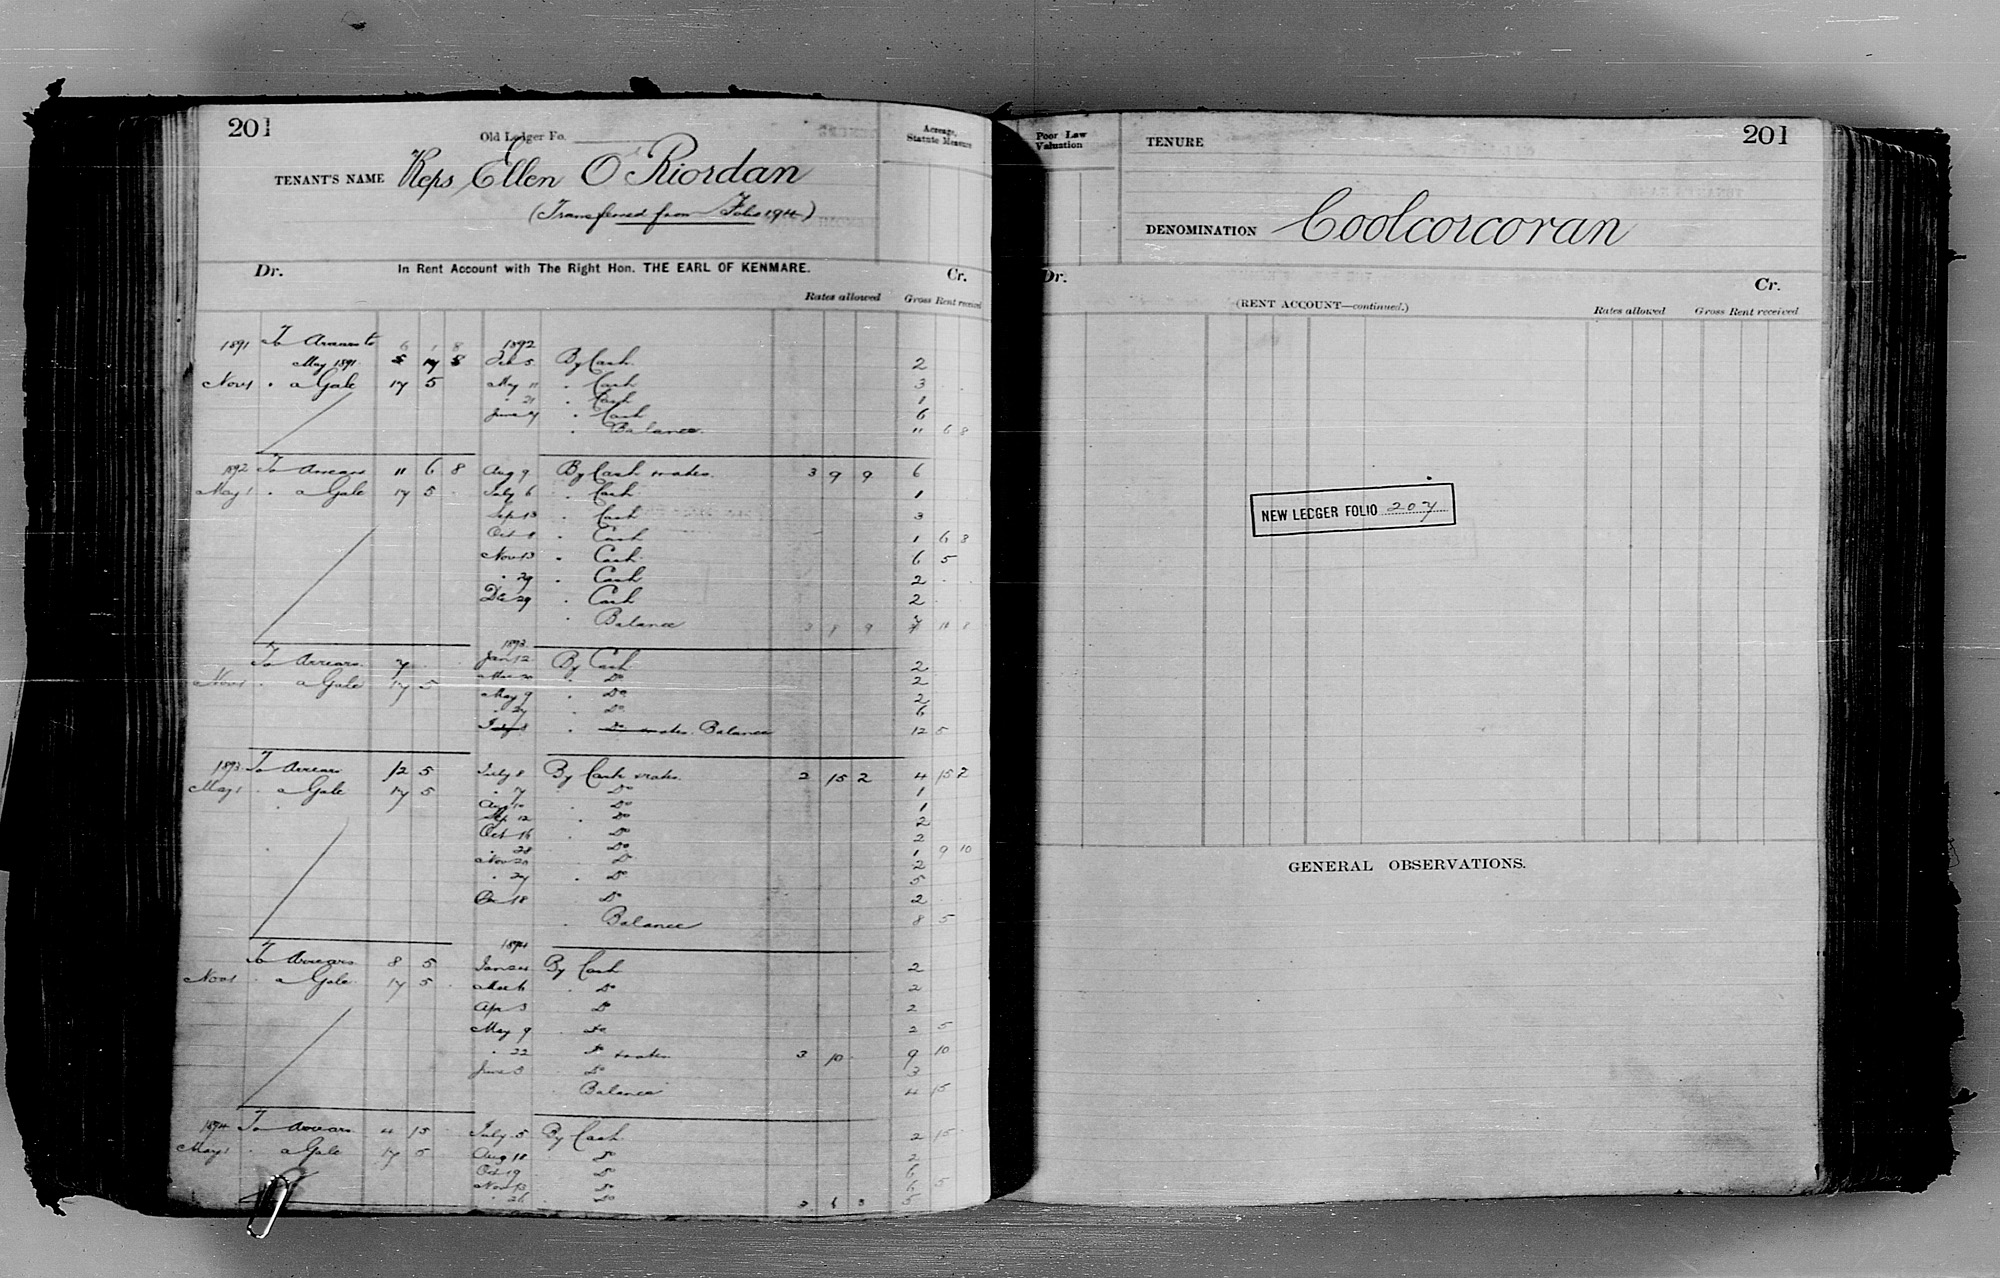 201
Old Ledger Fo.
Acreage, Statute Measure
TENANT'S NAME Reps Ellen O'Riordan
(Transferred from Folio 194)
Dr. In Rent Account with The Right Hon. THE EARL OF KENMARE. Cr.
Rates allowed Gross Rent received
1891 To Arrears to 6 1 8 1892
May 1891 8 Feb 5 By Cash 2
Nov 1 " a Gale 17 5 May 11 " Cash 3
" 21 " Cash 1
June 7 " Cash 6
" Balance 11 6 8
1892 To Arrears 11 6 8 Aug 9 By Cash & rates 3 9 9 6
May 1 " a Gale 17 5 July 6 " Cash 1
Sep 13 " Cash 3
Oct 8 " Cash 1 6 8
Nov 13 " Cash 6 5
" 29 " Cash 2
Dec 29 " Cash 2
" Balance 3 9 9 7 11 8
1893
To Arrears 7 Jan 12 By Cash 2
Nov 1 " a Gale 17 5 Mar 20 " Do 2
May 9 " Do 2
" 27 " Do 6
July 8 " Do & rates Balance 12 5
1893 To Arrears 12 5 July 8 By Cash & rates 2 15 2 4 15 2
May 1 " a Gale 17 5 " 17 Do 1
Aug 10 " Do 1
Sep 12 " Do 2
Oct 16 Do 2
" 28 Do 1 9 10
Nov 20 Do 2
" 27 " Do 5
Dec 18 Do 2
" Balance 8 5
1894
To Arrears 8 5 Jan 24 By Cash 2
Nov 1 " a Gale 17 5 Mar 6 " Do 2
Apr 3 Do 2
May 9 " Do 2 5
" 22 Do & rates 3 10 9 10
June 3 " Do 3
Balance 4 15
1894 To Arrears 4 15 July 5 By Cash 2 15
May 1 " a Gale 17 5 Aug 18 Do 2
Oct 19 Do 6
Nov 13 Do 6 5
" 26 " Do 3 6 3 5
Poor Law Valuation
TENURE
201
DENOMINATION Coolcorcoran
Dr. Cr.
(RENT ACCOUNT—continued.)
Rates allowed Gross Rent received
NEW LEDGER FOLIO 207
GENERAL OBSERVATIONS.